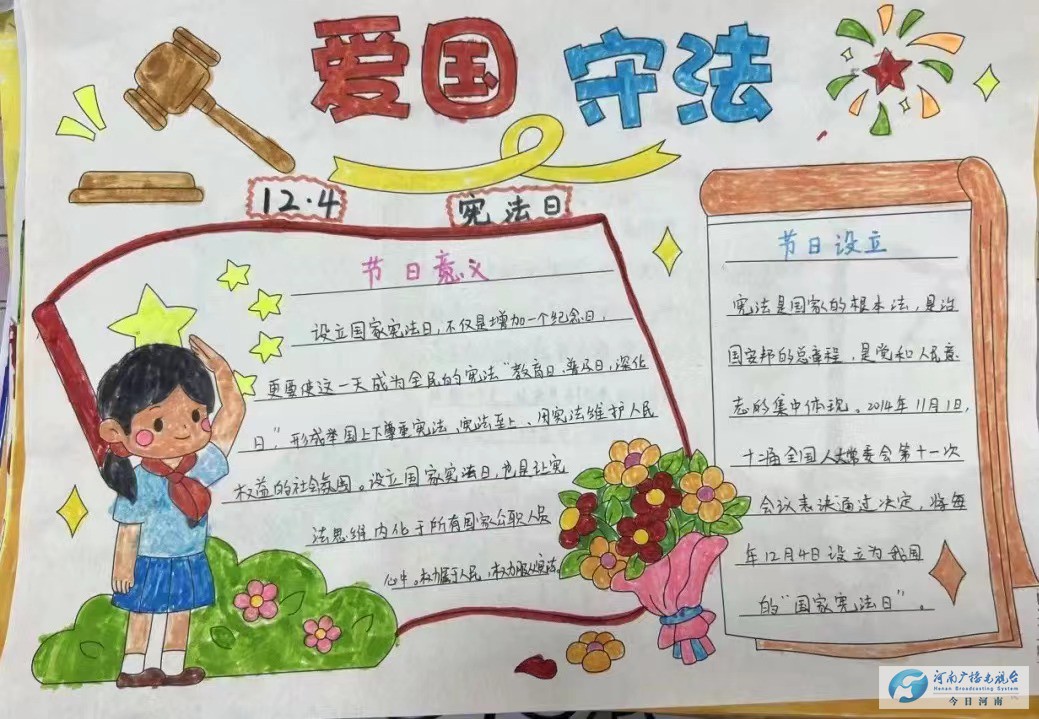 爱国 守法
12·4 宪法日
节日意义
设立国家宪法日，不仅是增加一个纪念日，
更要使这一天成为全民的宪法"教育日、普及日、深化
日"，形成举国上下尊重宪法、宪法至上、用宪法维护人民
权益的社会氛围。设立国家宪法日，也是让宪
法思维内化于所有国家公职人员
心中。权力属于人民，权力服从宪法。
节日设立
宪法是国家的根本法，是治
国安邦的总章程，是党和人民意
志的集中体现。2014年11月1日，
十二届全国人大常委会第十一次
会议表决通过决定，将每
年12月4日设立为我国
的"国家宪法日"。
河南广播电视台
Henan Broadcasting System
今日河南